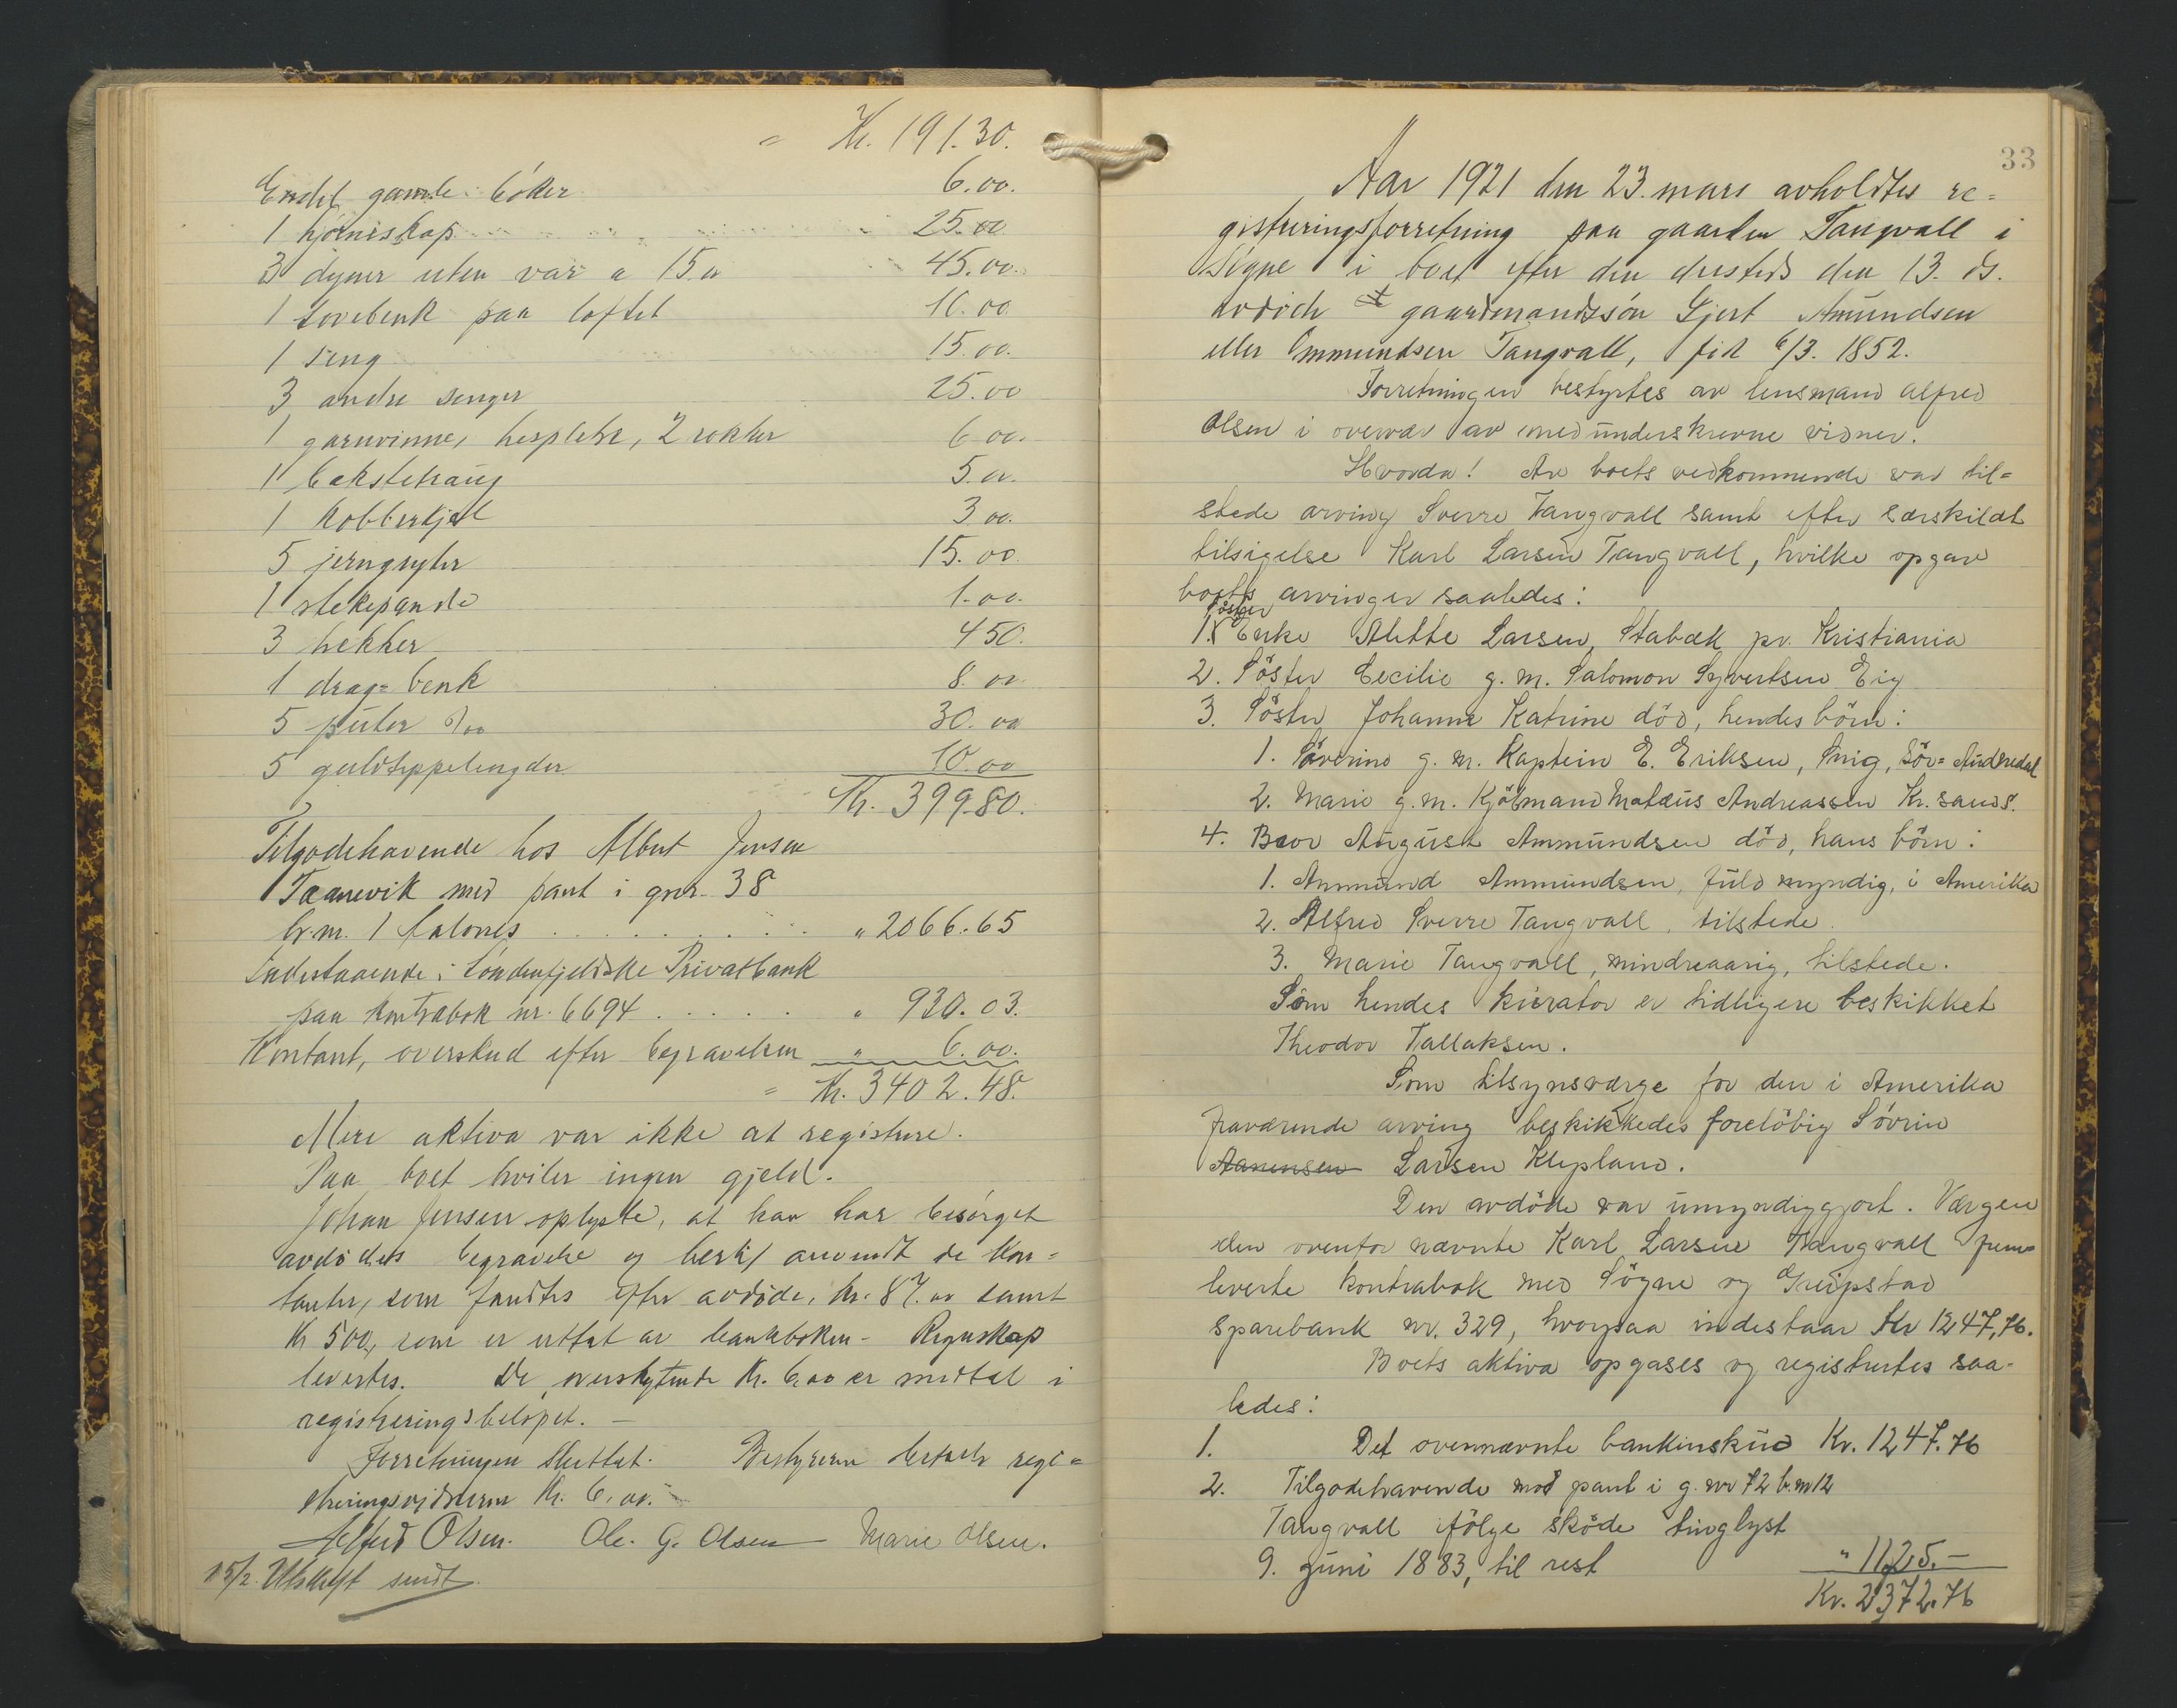 = Kr. 191.30.
Endel gamle böker 6.00.
1 hjörneskap 25.00
3 dyner uten var a 15.00 45.00.
1 sovebenk paa loftet 10.00.
1 seng 15.00.
3 andre senger 25.00
1 garnvinne, hespletre, 2 rokker 6.00.
1 bakstetraug 5.00.
1 kobberkjel 3.00.
5 jerngryter 15.00.
1 stekepande 1.00.
3 hekker 4.50.
1 drag=benk 8.00
5 puter 30.00
5 guldteppelengder 10.00
Kr. 399.80.
Tilgodehavende hos Albert Jensen
Taanevik med pant i gnr. 38
br.nr. 1 " 2066.65
Indestaaende i Söndenfjeldske Privatbank
paa kontrabok nr. 6694 . . . . . " 930.03.
Kontant, overskud efter begravelsen " 6.00.
= Kr. 3402.48.
Mere aktiva var ikke at registrere.
Paa boet hviler ingen gjeld.
Johan Jensen oplyste, at han har besörget
avdödes begravelse og hertil anvendt de kon=
tanter, som fandtes efter avdöde, kr. 87.00 samt
Kr 500, som er uttat av bankboken - Regnskap
levertes. De overskytende Kr. 6,00 er medtat i
registreringsbelöpet. -
Forretningen sluttet. Bestyreren betalte regi=
streringsvidnerne Kr. 6.00. -
Alfred Olsen. Ole. G. Olsen Marie Olsen.
15/2. Utskrift sendt.
33
Aar 1921 den 23. mars avholdtes re=
gistreringsforretning paa gaarden Tangvall i
Sögne i boet efter den dersteds den 13. ds.
avdöde gaardmandssön Gjert Amundsen
eller Ommundsen Tangvall, född 6/3. 1852.
Forretningen bestyrtes av lensmand Alfred
Olsen i overvær av medunderskrevne vidner.
Hvorda! Av boets vedkommende var til=
stede arving Sverre Tangvall samt efter særskildt
tilsigelse Karl Larsen Tangvall, hvilke opgav
boets arvinger saaledes:
söster
1. Enke Alette Larsen, Stabæk pr. Kristiania
2. Söster Cecilie g. m. Salomon Syvertsen Eig
3. Söster Johanne Katrine död, hendes börn:
1. Säverine g. m. Kaptein E. Eriksen, Snig, Sör=Audnedal
2. Marie g. m. Kjöbmand Matæus Andreassen Kr.sand S.
4. Bror August Ammundsen död, hans börn:
1. Ammund Ammundsen, fuldmyndig, i Amerika
2. Alfred Sverre Tangvall, tilstede.
3. Marie Tangvall, mindreaarig, tilstede.
Som hendes kurator er tidligere beskikket
Theodor Tallaksen.
Som tilsynsværge for den i Amerika
fraværende arving beskikkedes forelöbig Sövrin
Aanensen Larsen Klepland.
Den avdöde var umyndiggjort. Værgen
den ovenfor nævnte Karl Larsen Tangvall frem=
leverte kontrabok med Sögne og Greipstad
sparebank nr. 329, hvorpaa indestaar Kr 1247,76.
Boets aktiva opgaves og registrertes saa=
ledes:
1. Det ovennævnte bankinskud Kr. 1247.76
2. Tilgodehavende mod pant i g. nr 72 b. nr 12
Tangvall ifölge sköde tinglyst
9. juni 1883, til rest " 1125.-
Kr. 2372.76